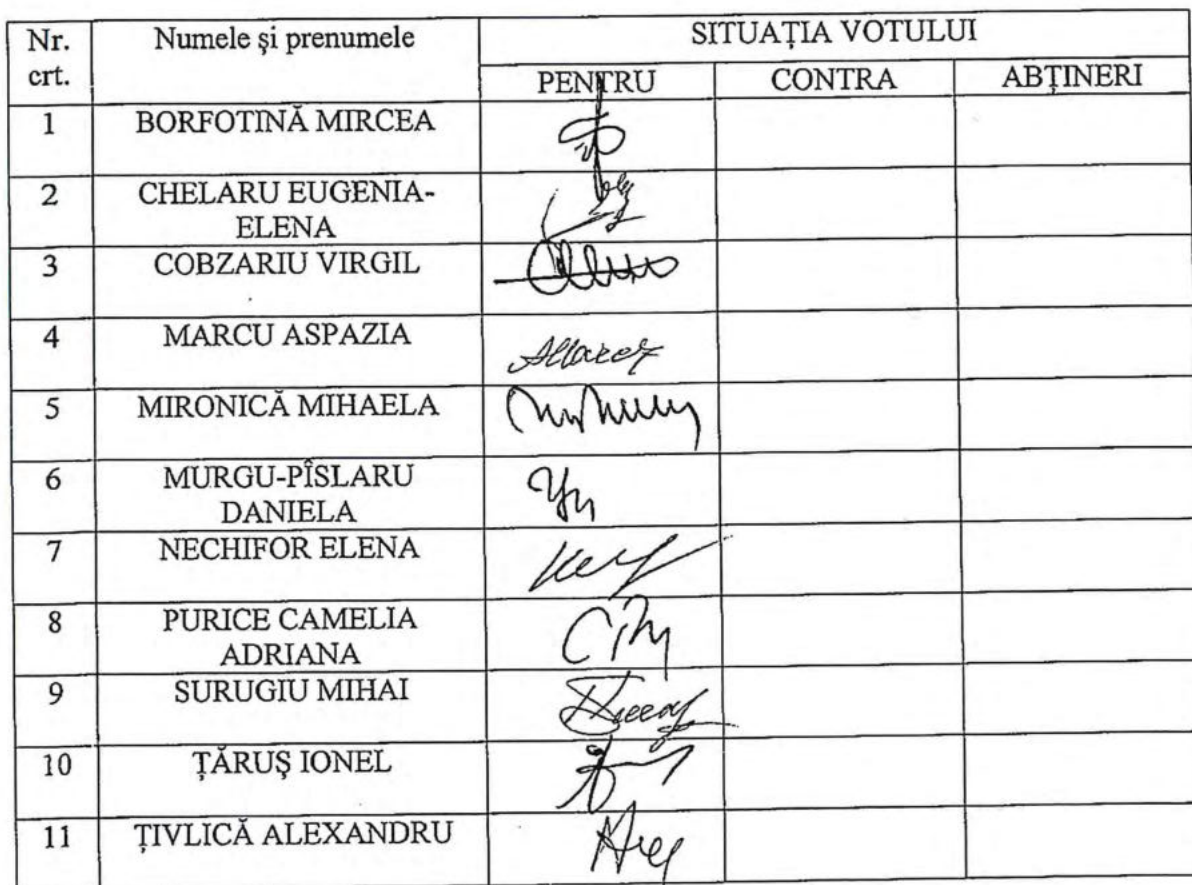 Nr. crt. Numele și prenumele SITUAȚIA VOTULUI
PENTRU CONTRA ABȚINERI
1 BORFOTINĂ MIRCEA
2 CHELARU EUGENIA-
ELENA
3 COBZARIU VIRGIL
4 MARCU ASPAZIA
5 MIRONICĂ MIHAELA
6 MURGU-PÎSLARU
DANIELA
7 NECHIFOR ELENA
8 PURICE CAMELIA
ADRIANA
9 SURUGIU MIHAI
10 ȚĂRUȘ IONEL
11 ȚIVLICĂ ALEXANDRU